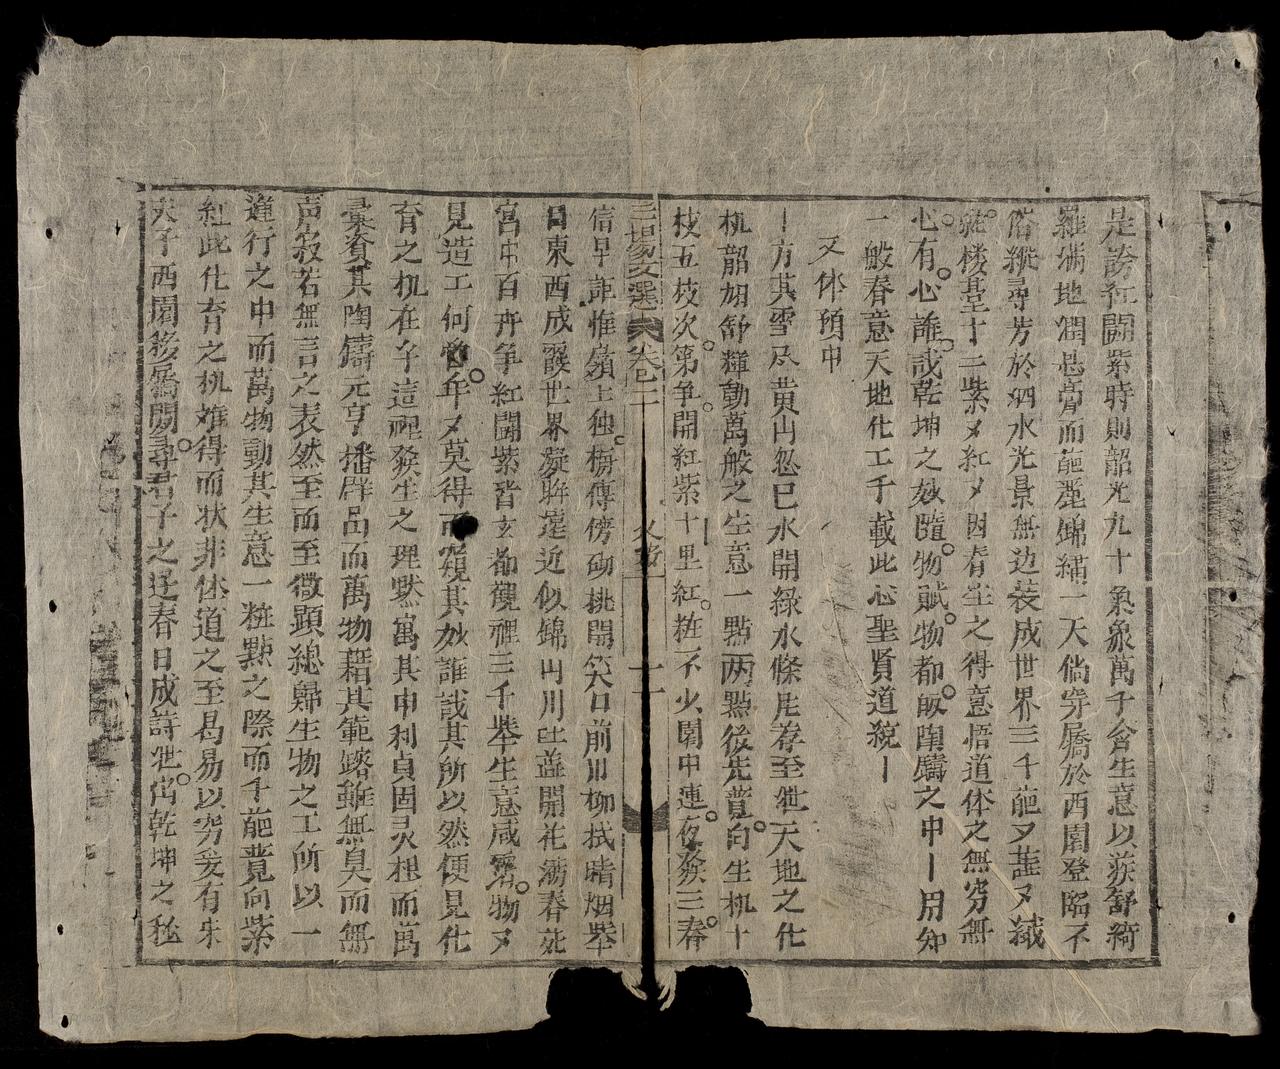 是誇紅鬪紫時則韶光九十氣象萬千會生意以發舒綺
羅滿地潤 膏而葩麗錦繡一天倘穷屩於西園登臨不
俗縱尋芳於泗水光景無边装成世界三千葩歹 又 
 楼臺十二紫〻紅〻因春生之得意悟道体之無穷無
心有心誰哉乾坤之妙隨物賦物都皈陶鑄之中丨用知
一般春意天地化工千載此心聖賢道貌丨
又体預中
丨方其雪 黄山忽已水開绿水條 荐至 天地之化
机韶 舒輝動萬般之生意一點两點後先嘗向生机十
枝五枝次第争開紅紫十里紅粧不少園中連夜發三春
三場文選 卷之十 十一
信早詎惟嶺上独梅傳傍砌桃開笑口前川柳拭晴烟舉
目東西成霞世界凝眸遠近似錦山川 盖開花 春 
宮中百卉争紅鬪紫皆玄都觀裡三千舉生意咸 物又
見造工何 年〻莫得而窺其妙誰哉其所以然便見化
育之机在乎這裡發生之理黙寓其中利貞固灵根而萬
彚資其陶鑄元亨播群品而萬物藉其範鎔雖無臭而無
声寂若無言之表然至而至微顕總歸生物之工所以一
違行之中而萬物動其生意一粧㸃之際而千葩竟向紫
紅此化育之机难得而状非体道之至曷易以穷妥有朱
夫子西園移屩閒尋君子之 春日成詩 尚乾坤之秘